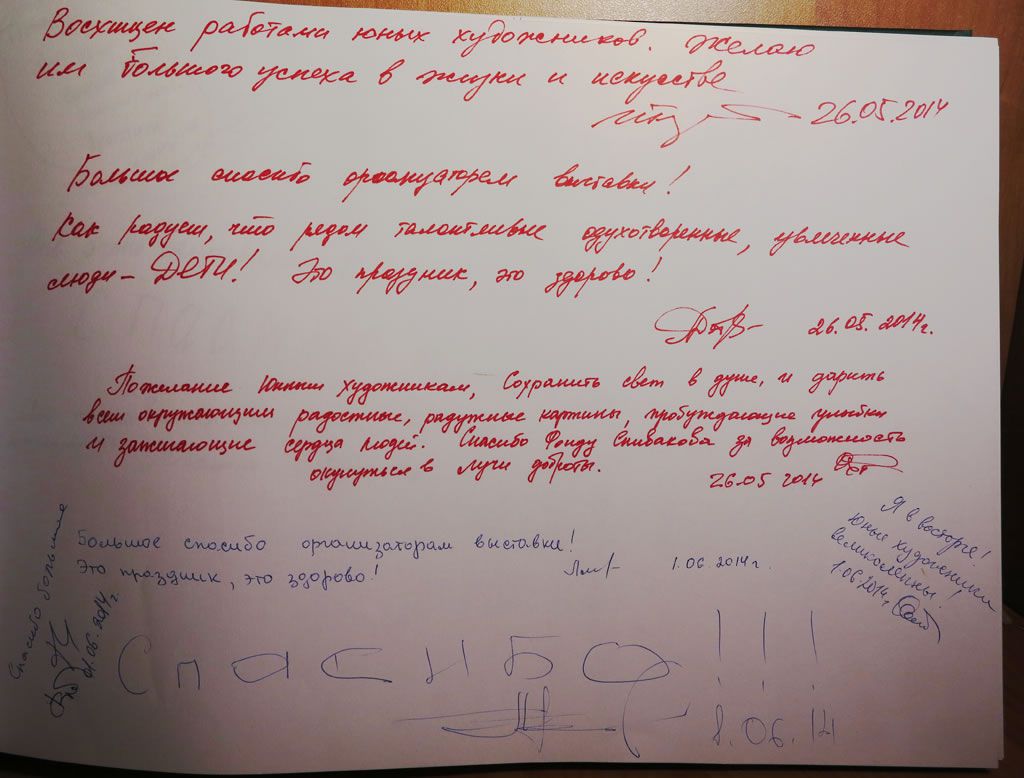 Восхищен работами юных художников. Желаю
им большого успеха в жизни и искусстве
26.05.2014
Большое спасибо организаторам выставки!
Как радует, что рядом талантливые одухотворенные, увлеченные
люди – ДЕТИ! Это праздник, это здорово!
26.05.2014г.
Пожелание Юным художникам, Сохранить свет в душе, и дарить
всем окружающим радостные, радужные картины, пробуждающие улыбки
и зажигающие сердца людей. Спасибо Фонду Спивакова за возможность
окунуться в лучи доброты.
26.05 2014
Большое спасибо организаторам выставки!
Это праздник, это здорово!
1.06.2014г.
Я в восторге!
Юные художники
великолепны!
1.06.2014г
Спасибо большое
01.06.2014г.
Спасибо!!!
8.06.14